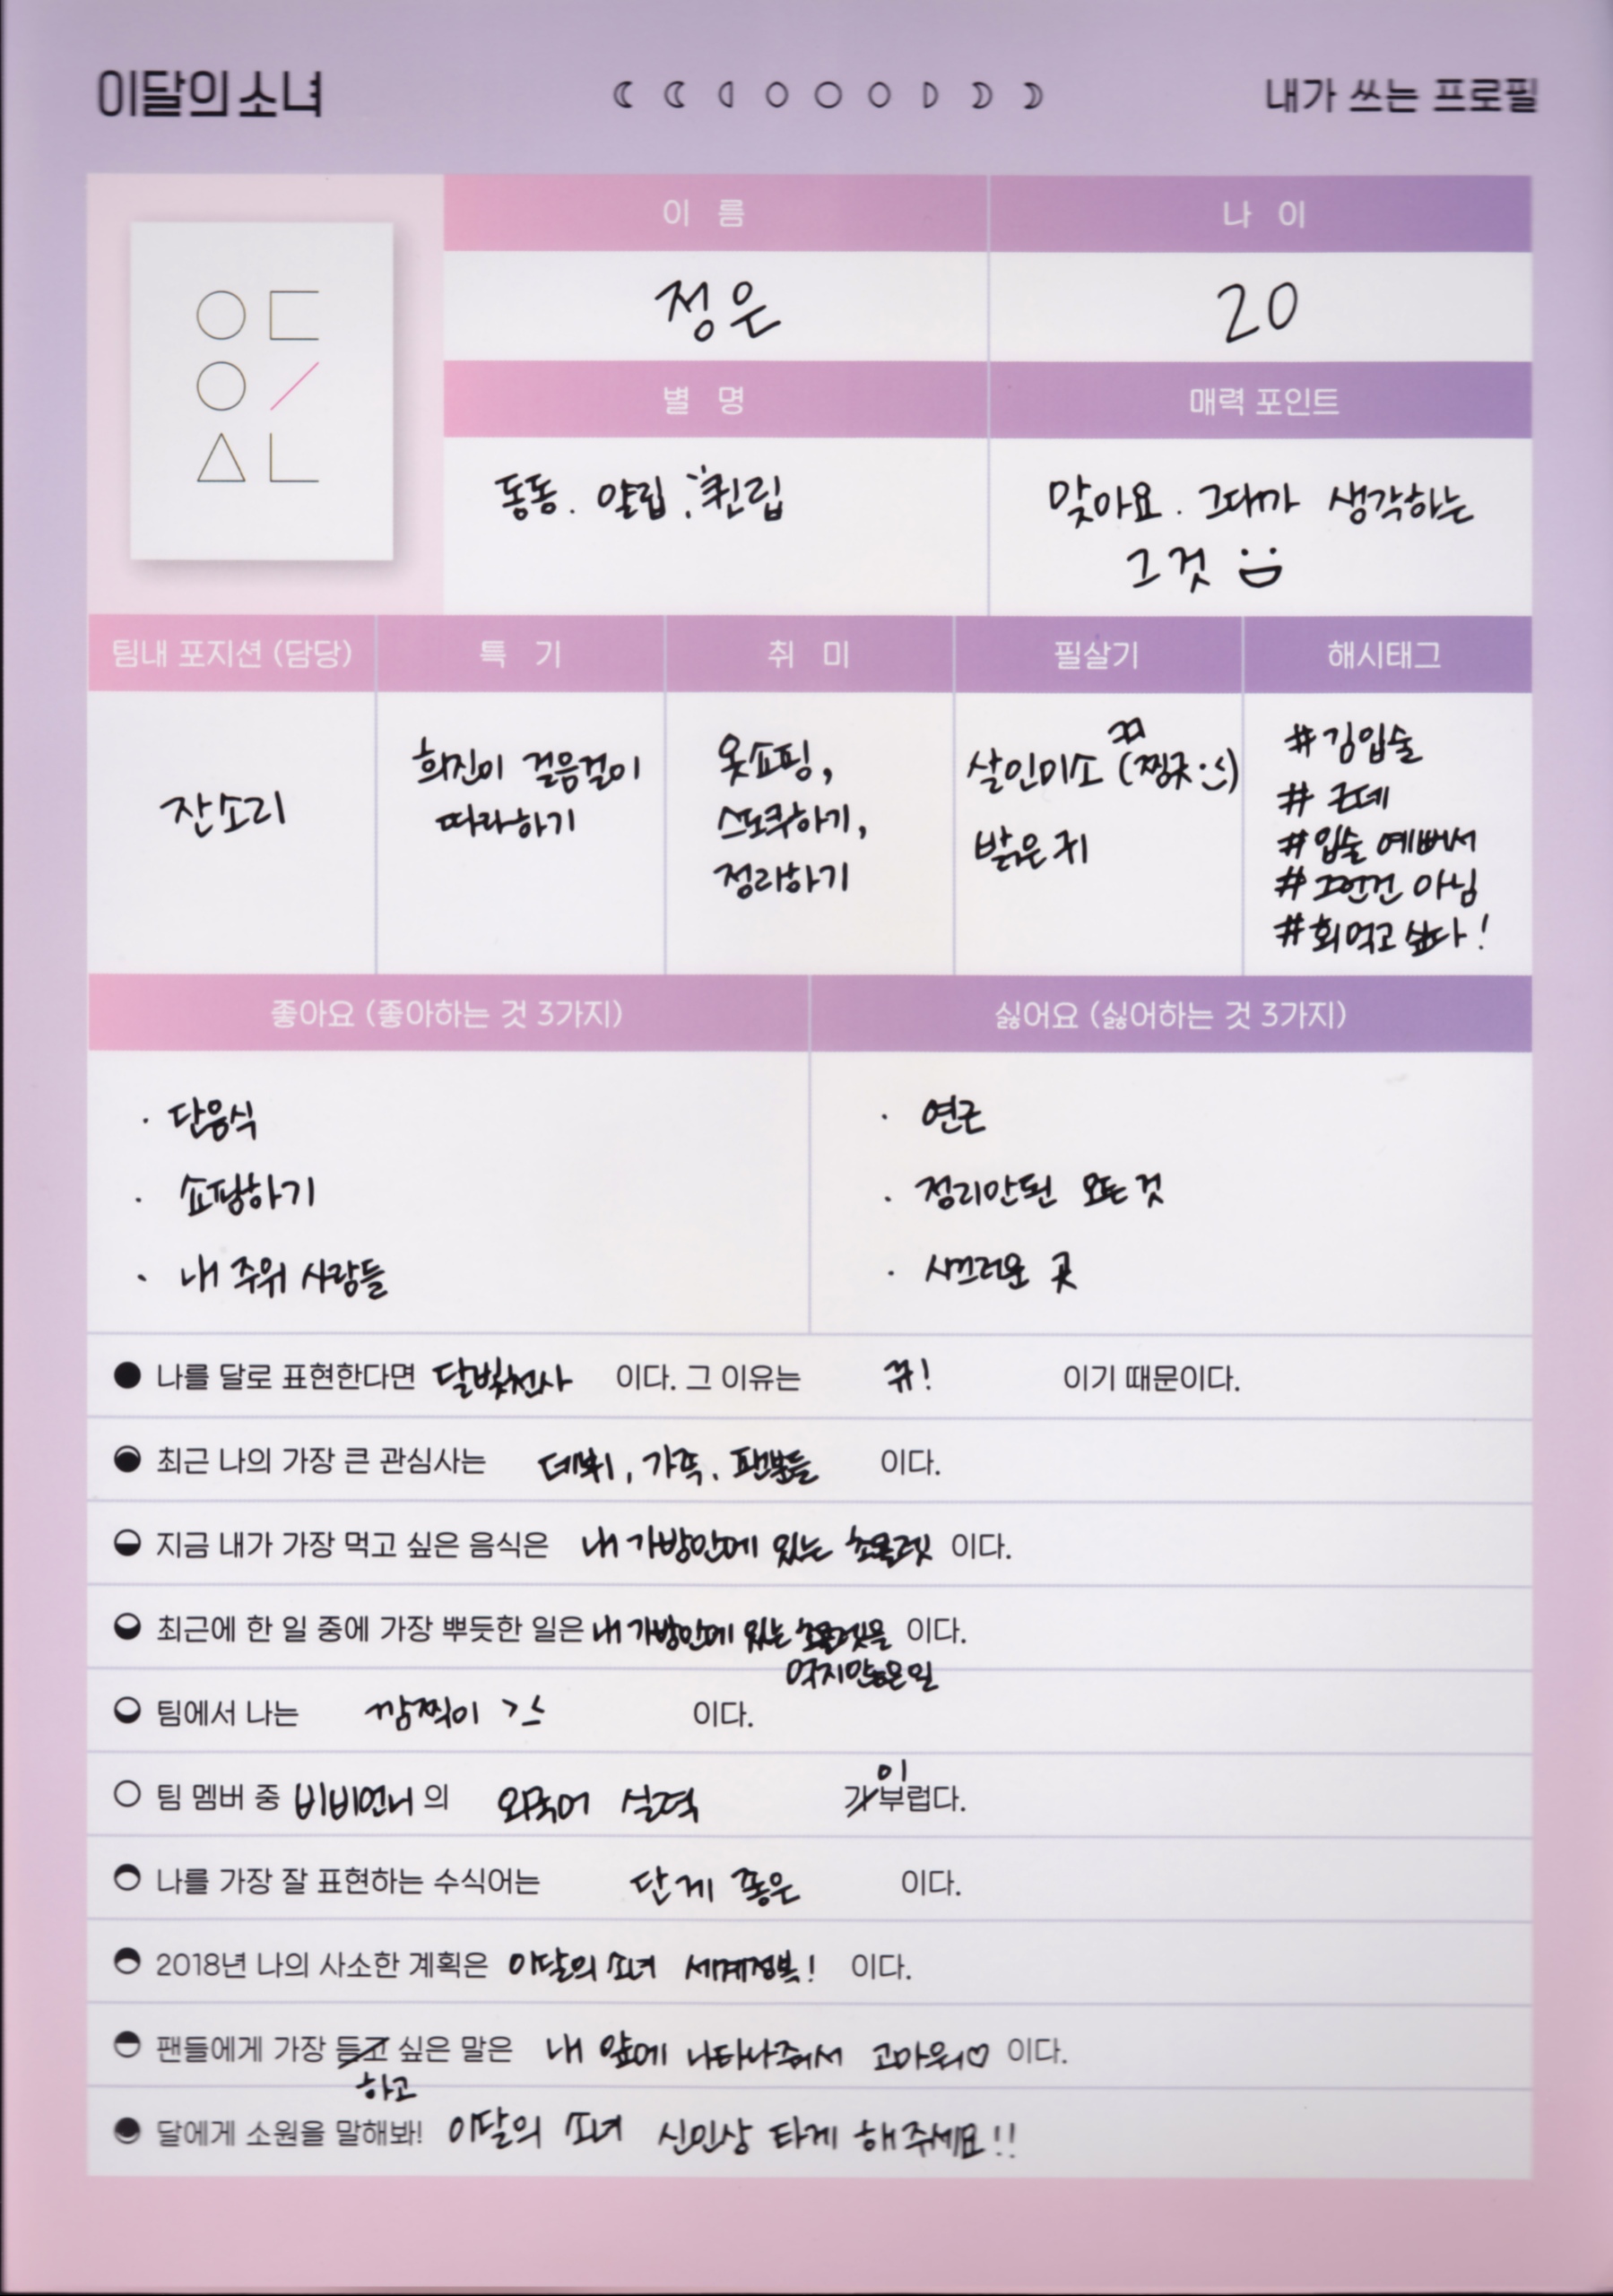 이달의 소녀
내가 쓰는 프로필
이 름
나 이
정은
20
별 명
매력 포인트
동동. 얄립. 퀸립
맞아요. 그대가 생각하는
그것
팀내 포지션 (담당)
특 기
취 미
필살기
해시태그
잔소리
희진이 걸음걸이
따라하기
옷쇼핑,
스도쿠하기,
정리하기
살인미소 (찡긋
밝은 귀
#김입술
#근데
#입술 예뻐서
#그런건 아님
#회먹고 싶다!
좋아요 (좋아하는 것 3가지)
싫어요 (싫어하는 것 3가지)
· 단음식
· 쇼핑하기
· 내 주위 사람들
· 연근
· 정리안된 모든 것
· 시끄러운 곳
나를 달로 표현한다면 달빛천사 이다. 그 이유는 뀨! 이기 때문이다.
최근 나의 가장 큰 관심사는 데뷔, 가족, 팬분들 이다.
지금 내가 가장 먹고 싶은 음식은 내 가방안에 있는 초콜렛 이다.
최근에 한 일 중에 가장 뿌듯한 일은 내 가방안에 있는 초콜렛을 이다.
먹지않은일
팀에서 나는 깜찍이 이다.
이
팀 멤버 중 비비언니 의 외국어 실력 가 부럽다.
나를 가장 잘 표현하는 수식어는 단게 좋은 이다.
2018년 나의 사소한 계획은 이달의 소녀 세계정복! 이다.
팬들에게 가장 듣고 싶은 말은 내 앞에 나타나줘서 고마워♡ 이다.
하고
달에게 소원을 말해봐! 이달의 소녀 신인상 타게 해주세요!!